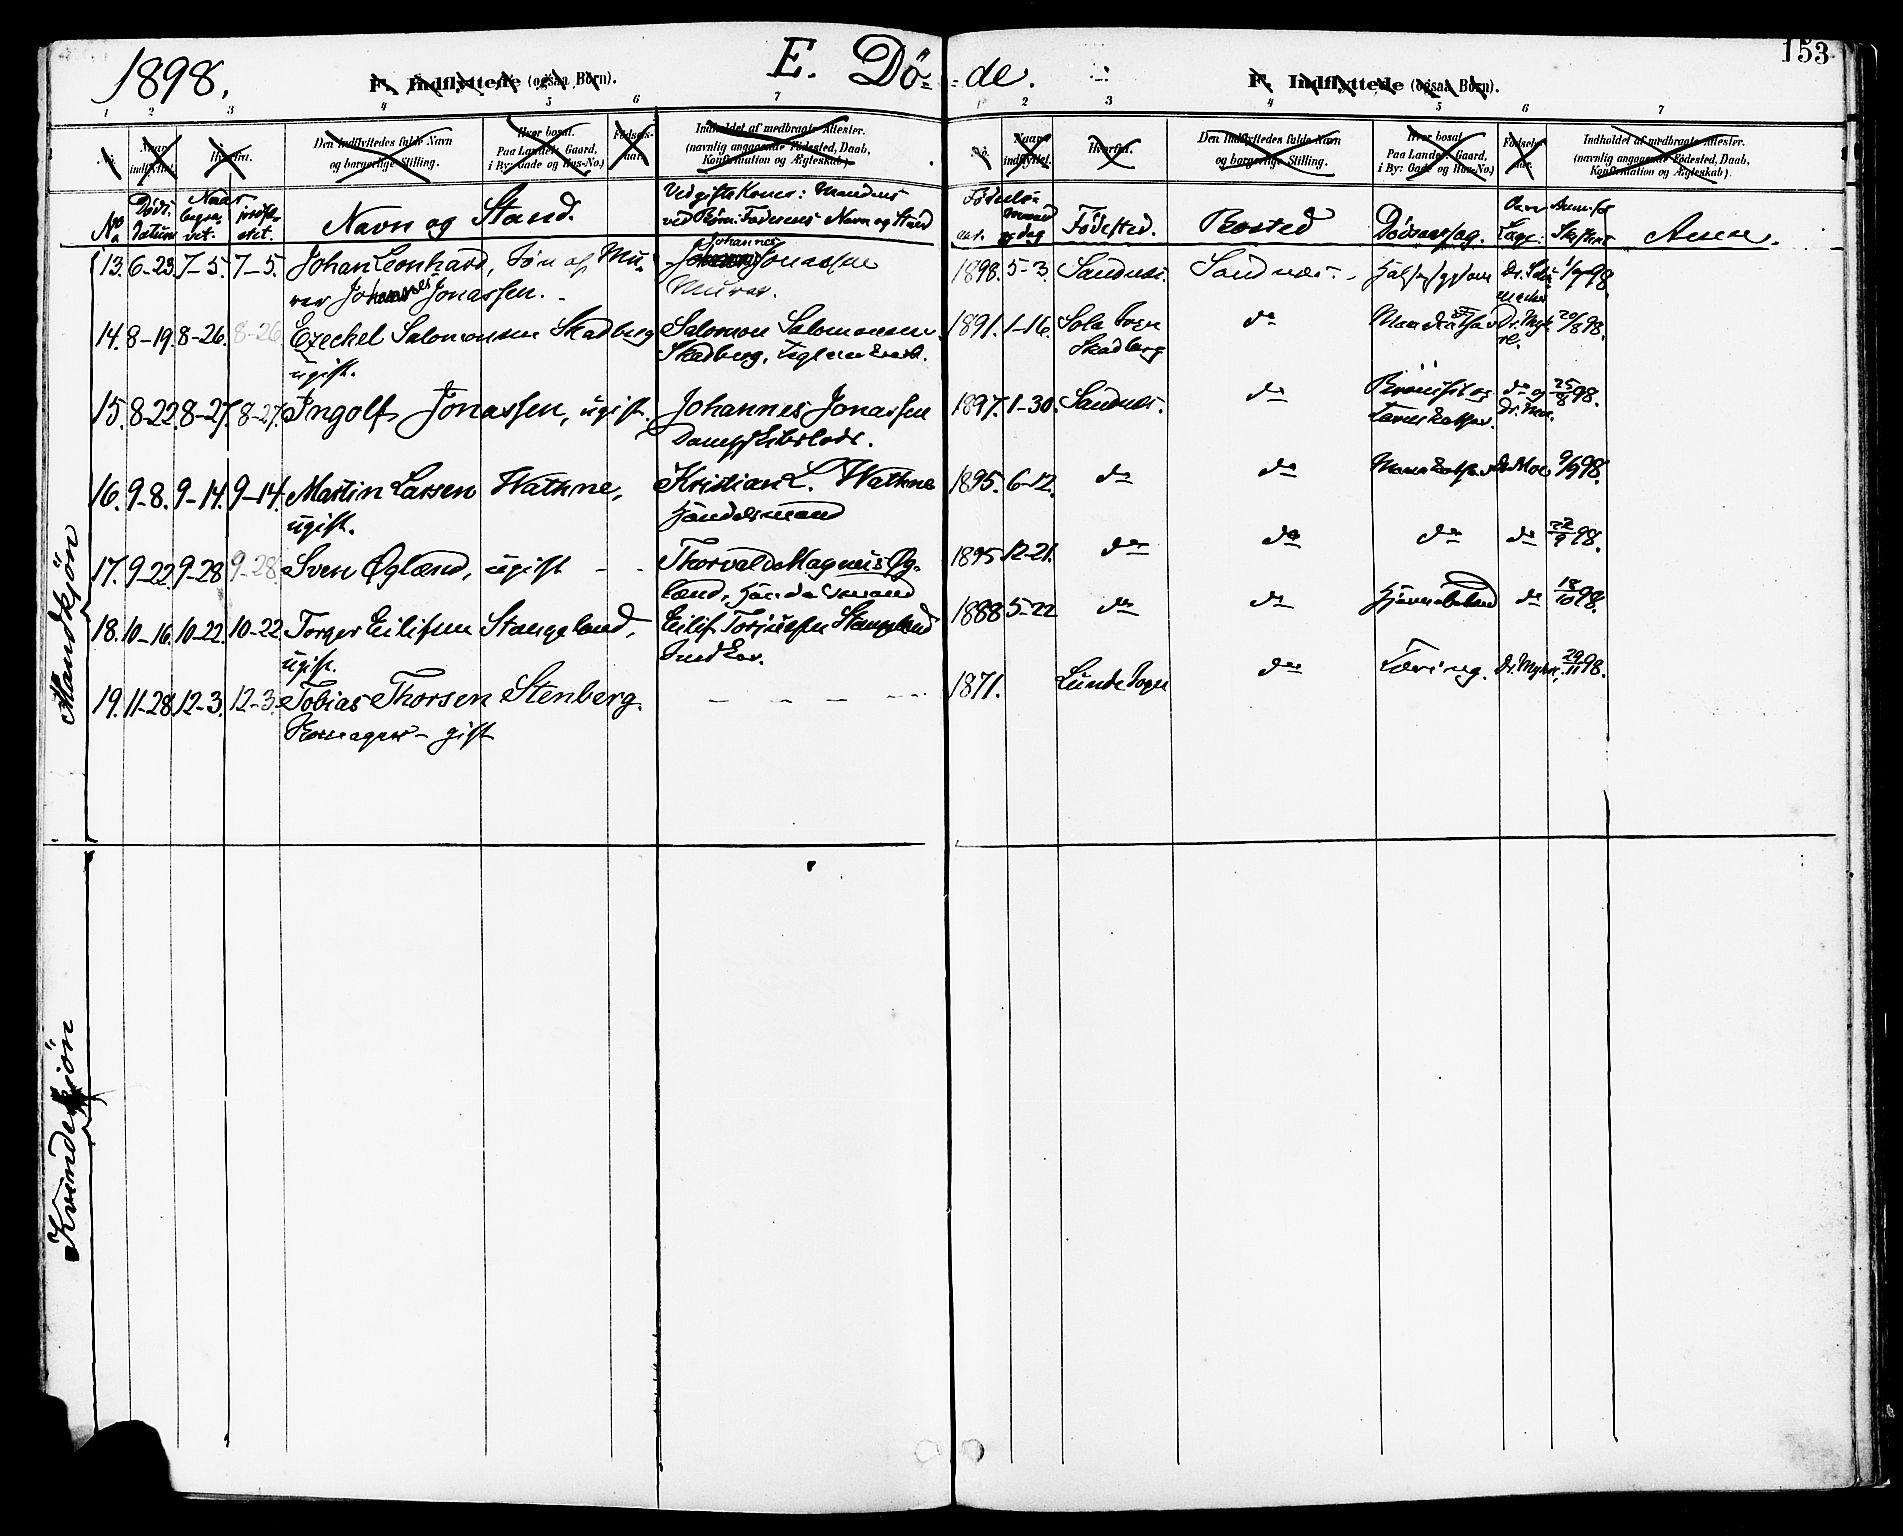 1898.
E. Dø-
de.
153
F. Indflyttede (ogsaa Børn).
F. Indflyttede (ogsaa Børn).
1 2 3 4 5 6 7
1 2 3 4 5 6 7
No. Naar indflyttet. Hvorfra. Den Indflyttedes fulde Navn og borgerlige Stilling. Hvor bosat. Paa Landet: Gaard, i By: Gade og Hus-No.) Fødsels-aar. Indholdet af medbragte Attester. (navnlig angaaende Fødested, Daab, Konfirmation og Ægteskab)
No. Naar indflyttet. Hvorfra. Den Indflyttedes fulde Navn og borgerlige Stilling. Hvor bosat. Paa Landet: Gaard, i By: Gade og Hus-No.) Fødsels-aar. Indholdet af medbragte Attester. (navnlig angaaende Fødested, Daab, Konfirmation og Ægteskab).
No. Døds-Datum Naar begra-vet. jordfæ-stet. Navn og Stand. Ved gifte Koner: Mandens ved Børn: Faderens Navn og Stand
Fødsels- aar. maaned og dag Fødested. Bosted Dødsaarsag. Læge. Anm. for Skiftere Anm.
Mandkjøn
13. 6-23. 7-5. 7-5. Johan Leonhard, Søn af Mu- Johannes Jonassen 1898. 5-3. Sandnes. Sandnes. Halssygdom
rer Johannes Jonassen. Murer.
14. 8-19. 8-26. 8-26 Ezechel Salomonsen Skadberg Salomon Salomonsen 1891. 1-16. Sola Sogn do 20/8 98.
ugift. Skadberg, Skadberg
15. 8-22. 8-27. 8-27. Ingolf Jonassen, ugift. Johannes Jonassen 1897. 1-30. Sandnes. do do og 25/8 98.
Dampskibslods. Dr. Moe.
16. 9-8. 9-14. 9-14. Martin Larsen Wathne, Kristian L. Wathne 1895. 6-12. do do Dr. Moe 9/9 98.
ugift. Handelsmand
17. 9-22. 9-28 9-28. Sven Øgland, ugift - - Thorvald Magnus Øg- 1895 12-21. do do do do 22/9 98.
land, Handelsmand
18. 10-16. 10-22. 10-22 Torger Eilifsen Stangeland, Eilif Torjussen Stangeland 1888 5-22 do do do 18/10 98.
ugift. Snedker.
19. 11-28. 12-3. 12-3. Tobias Thorsen Stenberg. - - - - 1871. Lunde Sogn do Tæring. 29/11 98.
gift
Kvindekjøn